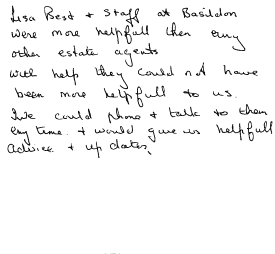 Lisa Best + Staff at Basildon
were more helpfull then eny
other estate agents
with help they could not have
been more helpfull to us.
We could phone + talk to them
eny time. + would gave us helpfull
advice + up dates.